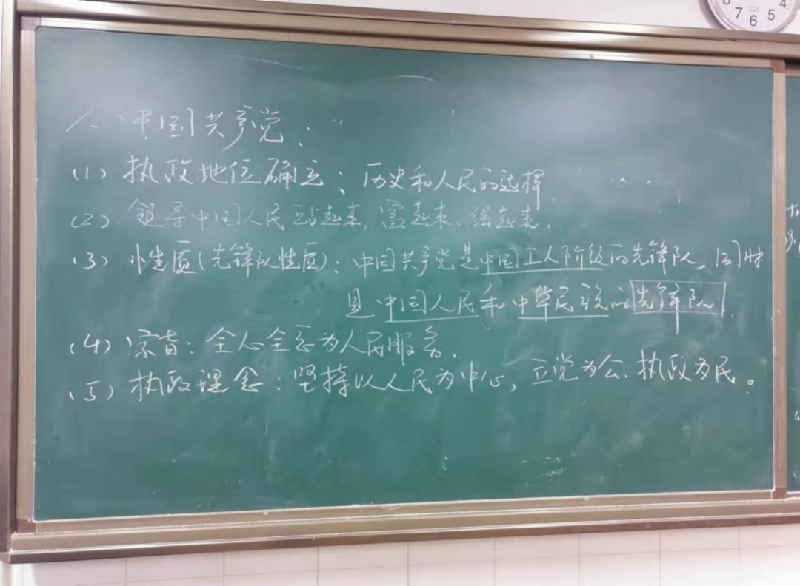 7 6 5 4
一、中国共产党：
(1) 执政地位确立：历史和人民的选择
(2) 领导中国人民站起来、富起来、强起来.
(3) 性质(先锋队性质)：中国共产党是中国工人阶级的先锋队、同时
是中国人民和中华民族的先锋队.
(4) 宗旨：全心全意为人民服务.
(5) 执政理念：坚持以人民为中心，立党为公、执政为民。